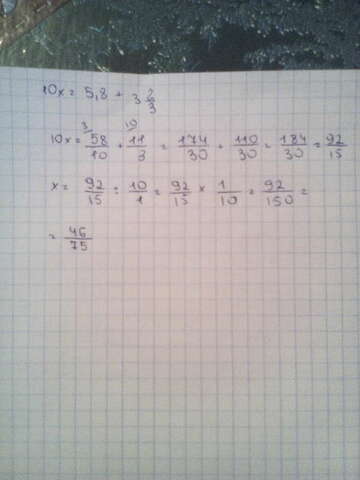 10x = 5,8 + 3 2/3
10x = 58/10 (3) + 11/3 (10) = 174/30 + 110/30 = 184/30 = 92/15
x = 92/15 : 10/1 = 92/15 × 1/10 = 92/150 =
= 46/75